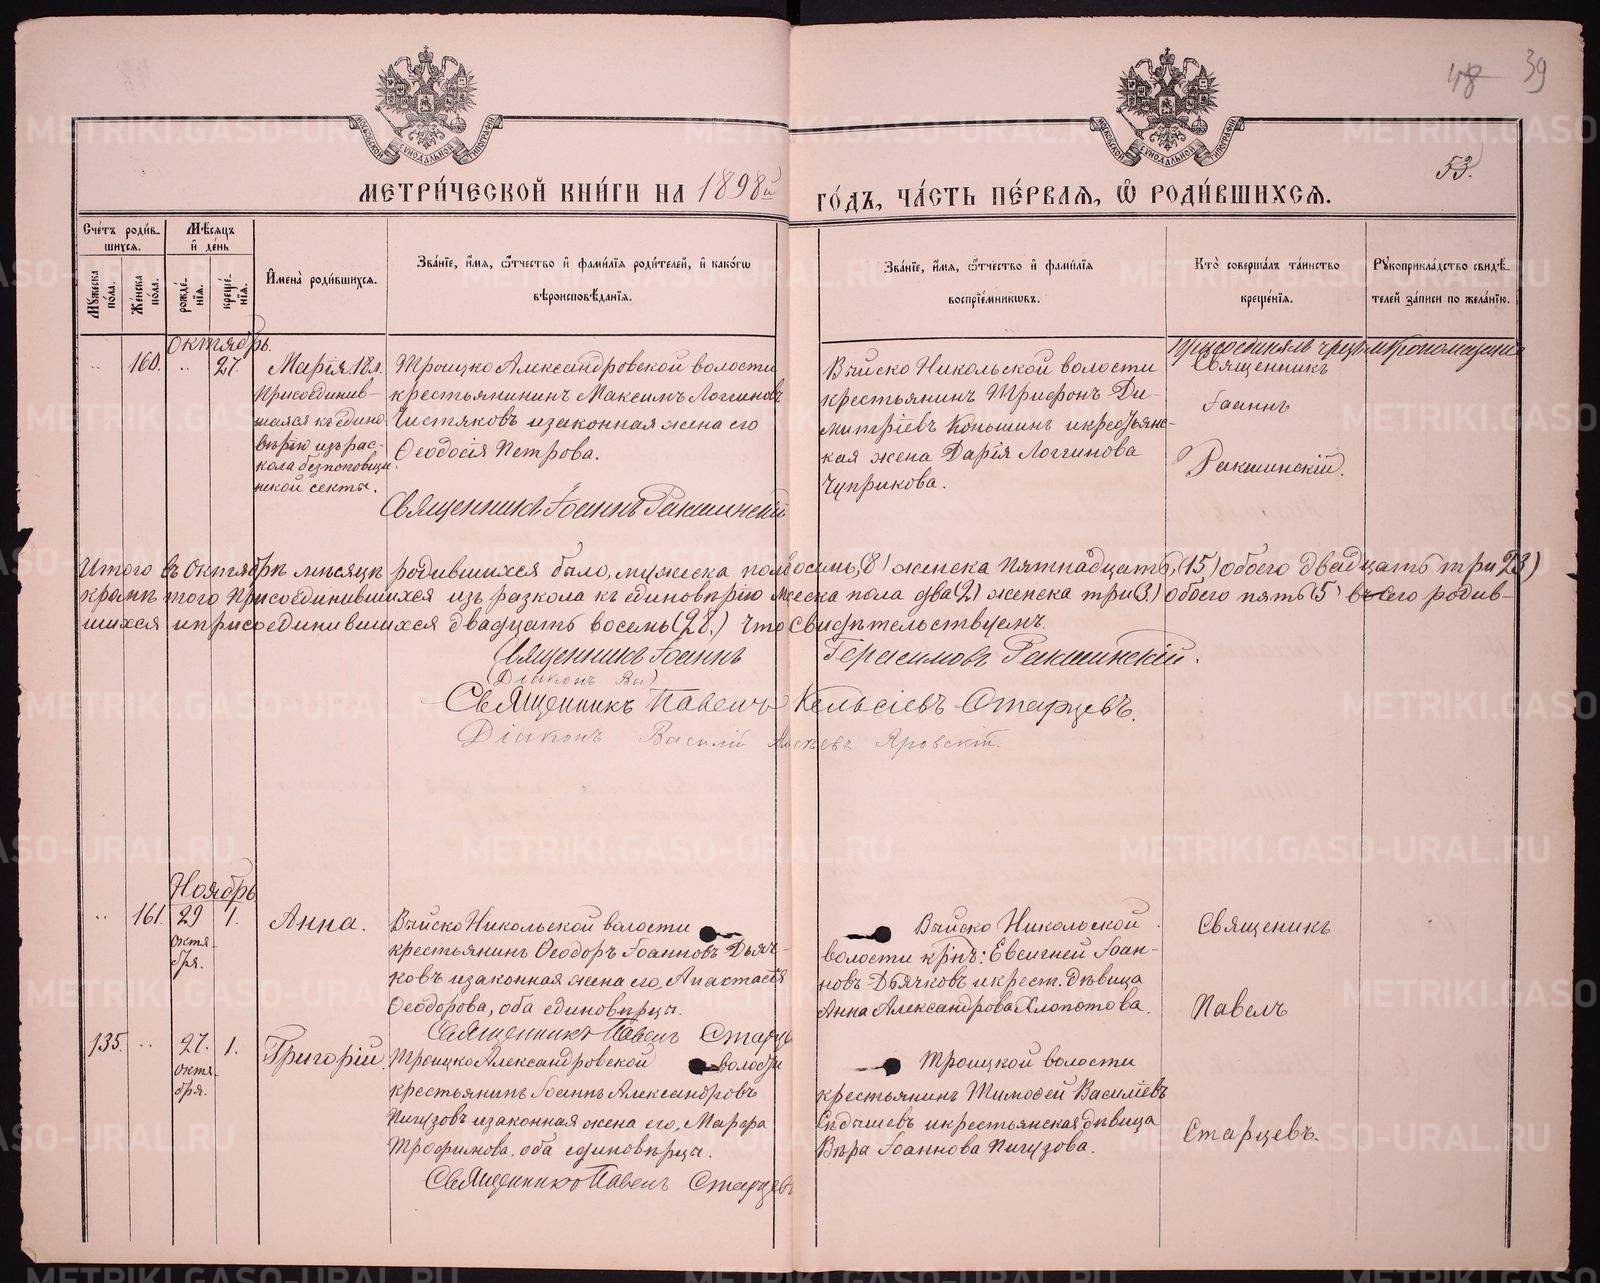 48 39
53.
МОСКОВСКОЙ СУНОДАЛЬНОЙ ТИПОГРАФІИ
МОСКОВСКОЙ СУНОДАЛЬНОЙ ТИПОГРАФІИ
МЕТРИ́ЧЕСКОЙ КНИ́ГИ НА 1898й ГО́ДЪ, ЧА́СТЬ ПЕ́РВАЯ, Ѽ РОДИ́ВШИХСЯ.
Сче́тъ роди́в-
шихся.
Мѣсяцъ
и де́нь
Мꙋжеска по́ла.
Же́нска по́ла.
рожде́-
нїя.
креще́-
нїя.
Имена̀ роди́вшихся.
Зва́нїе, и́мя, ѻ҆́тчество и҆ фами́лїя роди́телей, и҆ како́гѡ
вѣроисповѣ́данїя.
Зва́нїе, и́мя, ѻ҆́тчество и҆ фами́лїя
воспрїе́мникѡвъ.
Кто̀ соверша́лъ та́инство
креще́нїя.
Рꙋкоприкла́дство свидѣ́-
телей за́писи по жела́нїю.
Октябрь.
160. 27. Марія 18 л.
присоединив-
шаяся къ едино-
вѣрію изъ рас-
кола безпоповщи-
нской секты.
Троицко Александровской волости
крестьянинъ Максимъ Логгиновъ
Чистяковъ и законная жена его
Ѳеодосія Петрова.
Священникъ Іоаннъ Ракшинскій
Выйско Никольской волости
крестьянинъ Трифонъ Ди-
митріевъ Коньшинъ и крестьянс-
кая жена Дарія Логгинова
Чуприкова.
присоединялъ чрезъ мѵропомазаніе
Священникъ
Іоаннъ
Ракшинскій.
Итого въ октябрѣ мѣсяцѣ родившихся было, мужеска пола восемь (8) женска пятнадцать, (15) обоего двадцать три 23)
кромѣ того присоединившихся изъ раскола къ единовѣрію мужеска пола два (2) женска три (3) обоего пять (5) всего родив-
шихся и присоединившихся двадцать восемь (28.) что свидѣтельствуемъ.
Священникъ Іоаннъ Герасимовъ Ракшинскій.
(Діаконъ Ва)
Священникъ Павелъ Кельсіевъ Старцевъ.
Діаконъ Василій Яровскій.
Ноябрь
161. 29 1. Анна.
октя-
бря.
Выйско Никольской волости
крестьянинъ Ѳеодоръ Іоанновъ Дьяч-
ковъ и законная жена его, Анастасія
Ѳеодорова, оба единовѣрцы.
Священникъ Павелъ Старцевъ
Выйско Никольской
волости крнъ: Евсигней Іоан-
новъ Дьячковъ и крест. дѣвица
Анна Александрова Хлопотова.
Священикъ
Павелъ
135. 27. 1. Григорій.
октя-
бря.
Троицко Александровской волости
крестьянинъ Іоаннъ Александровъ
Пигузовъ и законная жена его, Марѳа
Трофимова, оба единовѣрцы.
Священникъ Павелъ Старцевъ
Троицкой волости
крестьянинъ Тимоѳей Василіевъ
и крестьянская дѣвица
Вѣра Іоаннова Пигузова.
Старцевъ.
METRIKI.GASO-URAL.RU